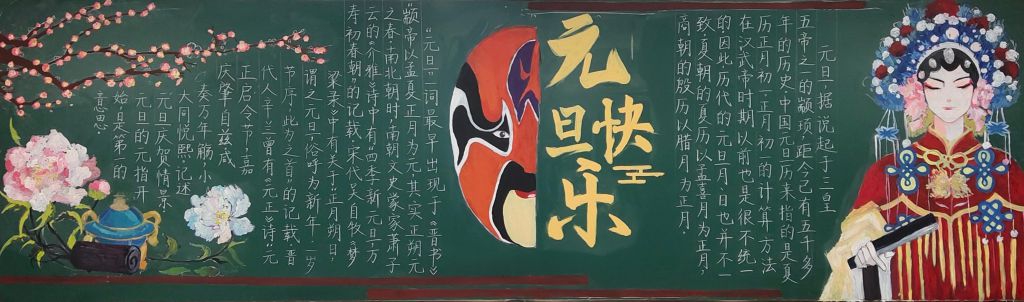 元旦快乐
元旦，据说起于三皇
五帝之一的颛顼，距今已有五千多
年的历史。中国元旦历来指的是夏
历正月初一。正月初一的计算方法
在汉武帝时期以前也是很不统一
的。因此，历代的元旦月、日也并不一
致。夏朝的夏历以孟喜月为正月，
商朝的殷历以腊月为正月。
"元旦"一词最早出现于《晋书》
"颛帝以孟夏正月为元，其实正朔元
之春"南北朝时，南朝文史家萧子
云的《介雅》诗中有"四季新元旦，万
寿初春朝"的记载。宋代吴自牧《梦
梁录》中有关于"正月朔日，
谓之元旦，俗呼为新年。一岁
节序，此为之首"的记载。晋
代人辛三曾有《元正》诗"元
正启令节，嘉
庆肇自兹。咸
奏万年觞，小
大同悦熙。"记述
元旦庆贺情景
元旦的元指开
始是第一的
意思。